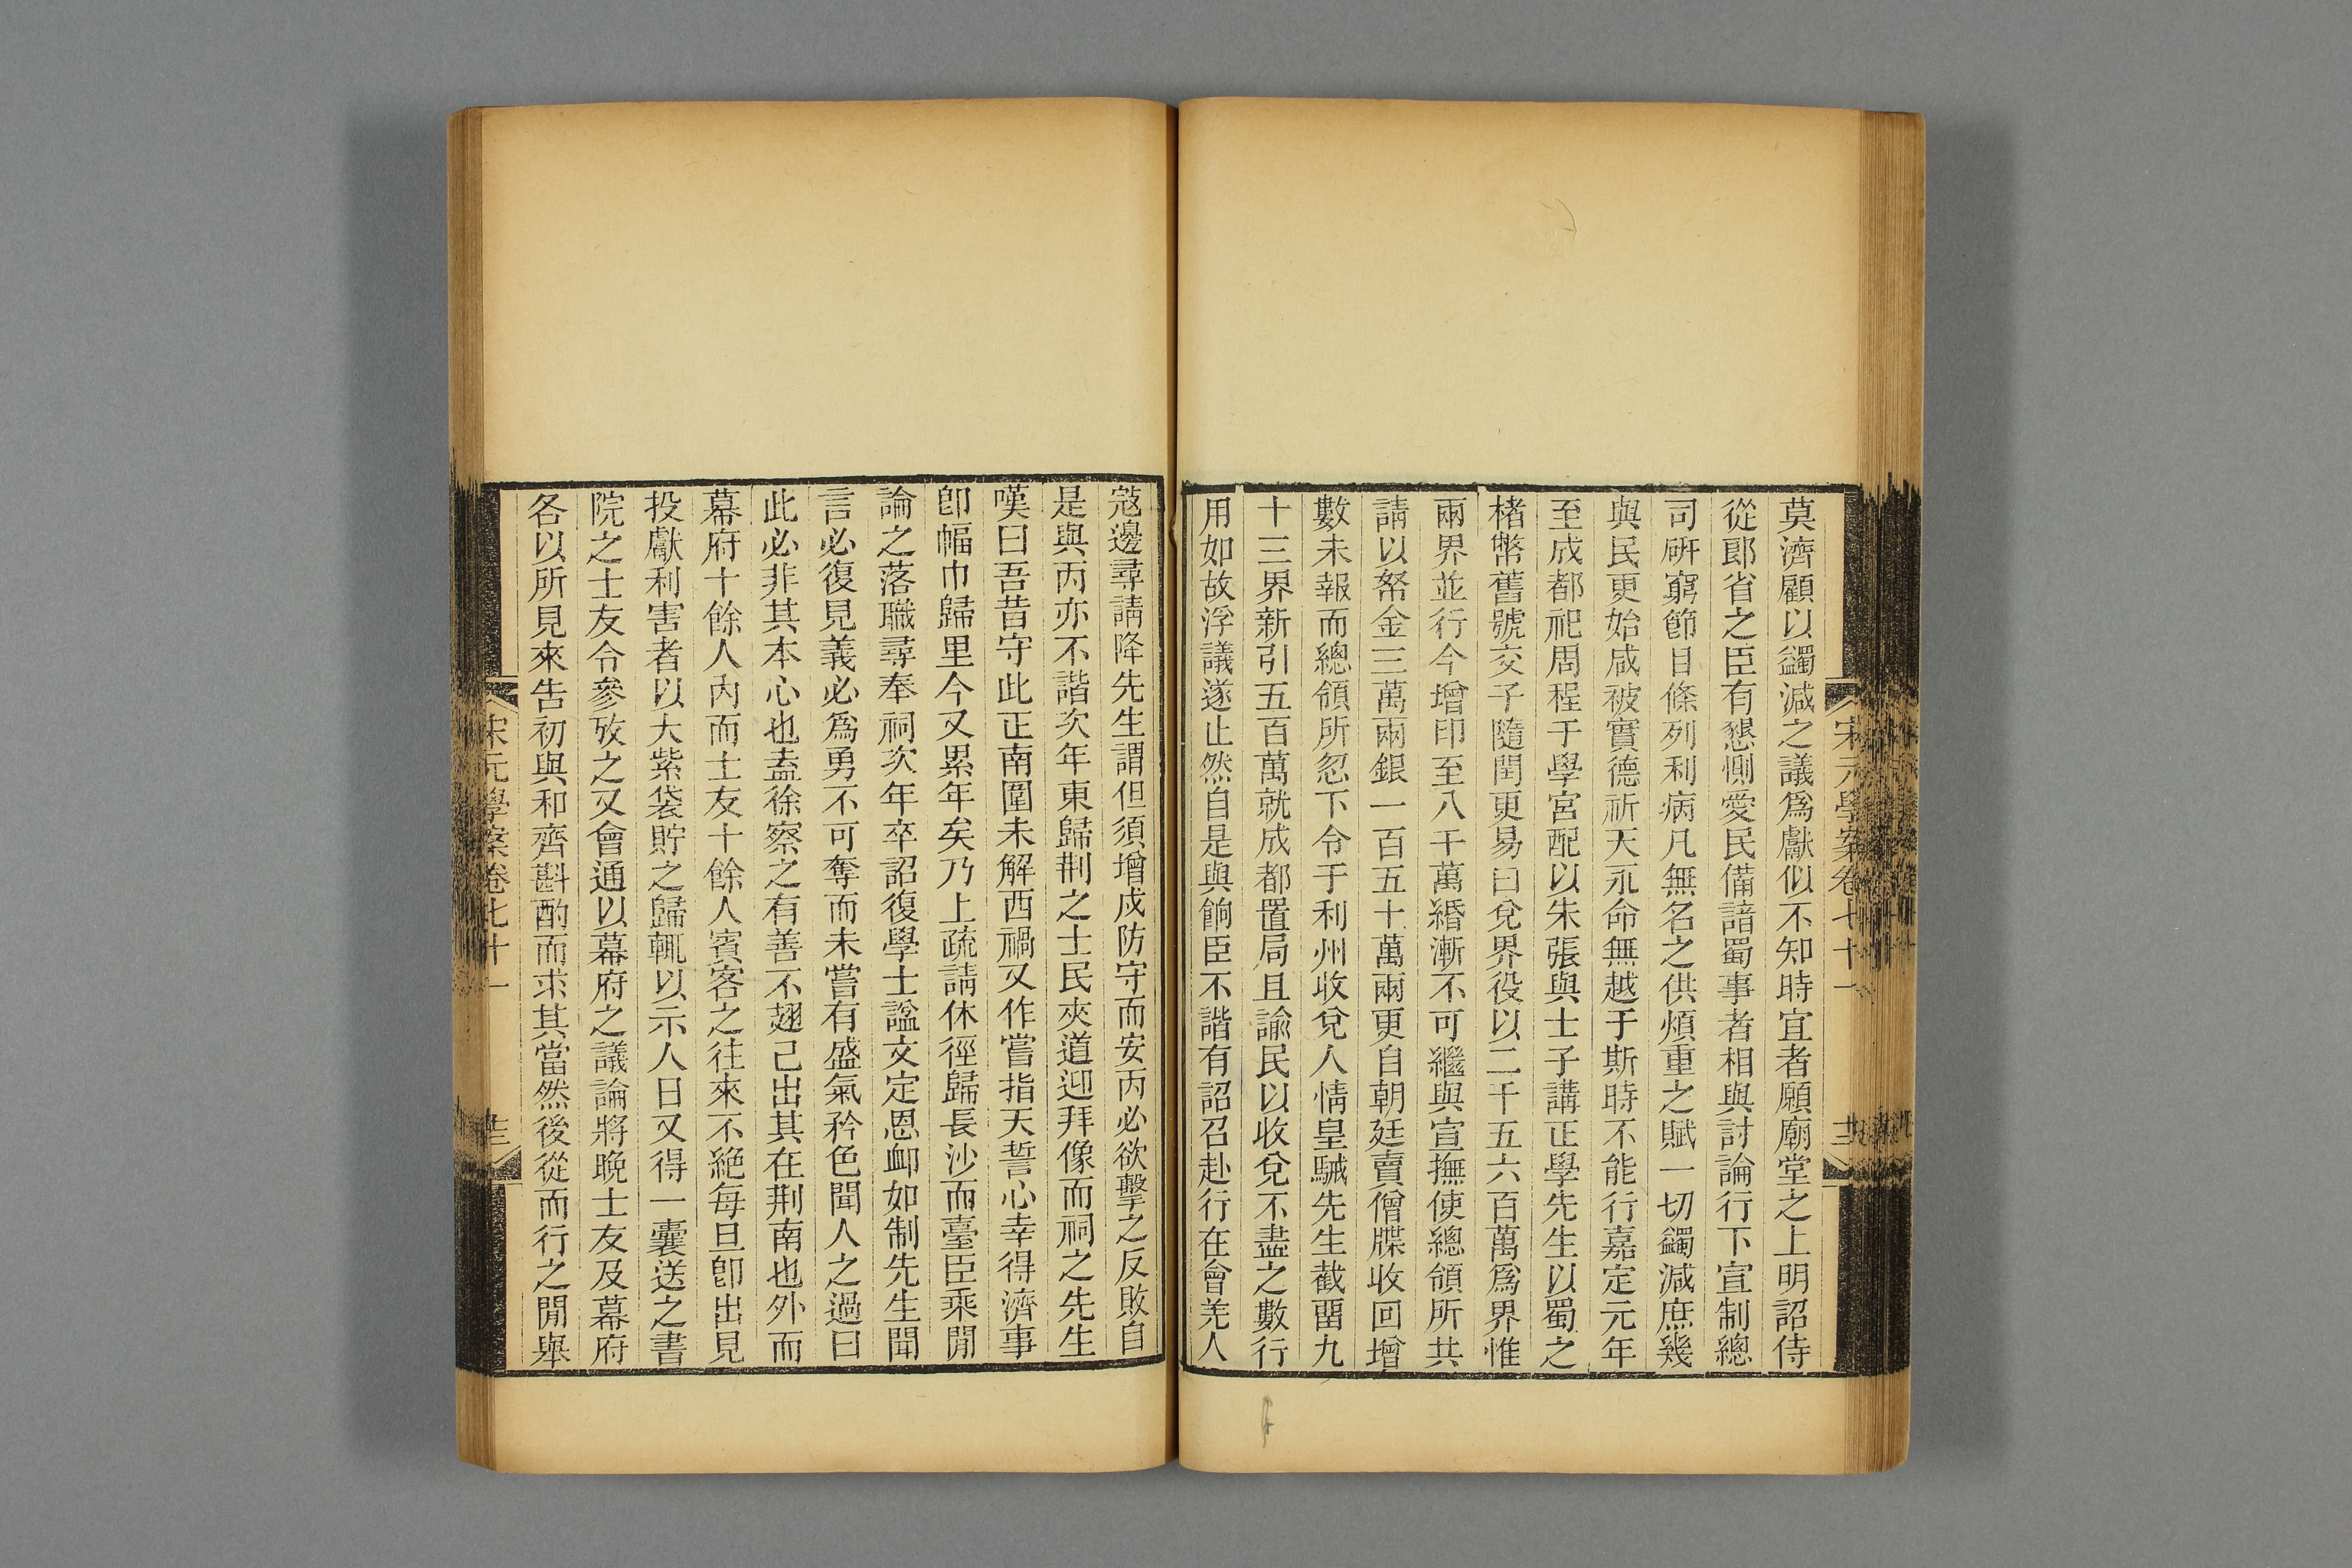 莫濟顧以蠲減之議爲獻似不知時宜者願廟堂之上明詔侍
從郞省之臣有懇惻愛民備諳蜀事者相與討論行下宣制總
司硏窮節目條列利病凡無名之供煩重之賦一切蠲減庶幾
與民更始咸被實德祈天永命無越于斯時不能行嘉定元年
至成都祀周程于學宮配以朱張與士子講正學先生以蜀之
楮幣舊號交子隨閏更易曰兌界役以二千五六百萬爲界惟
兩界並行今增印至八千萬緡漸不可繼與宣撫使總領所共
請以帑金三萬兩銀一百五十萬兩更自朝廷賣僧牒收回增
數未報而總領所忽下令于利州收兌人情皇駴先生截畱九
十三界新引五百萬就成都置局且諭民以收兌不盡之數行
用如故浮議遂止然自是與餉臣不諧有詔召赴行在會羌人
寇邊尋請降先生謂但須增戍防守而安丙必欲擊之反敗自
是與丙亦不諧次年東歸荆之士民夾道迎拜像而祠之先生
嘆曰吾昔守此正南圍未解西禍又作嘗指天誓心幸得濟事
卽幅巾歸里今又累年矣乃上疏請休徑歸長沙而臺臣乘閒
論之落職尋奉祠次年卒詔復學士諡文定恩䘏如制先生聞
言必復見義必爲勇不可奪而未嘗有盛氣矜色聞人之過曰
此必非其本心也蓋徐察之有善不翅己出其在荆南也外而
幕府十餘人內而士友十餘人賓客之往來不絕每旦卽出見
投獻利害者以大紫袋貯之歸輒以示人日又得一囊送之書
院之士友令參攷之又會通以幕府之議論將晚士友及幕府
各以所見來告初與和齊斟酌而求其當然後從而行之閒舉
宋元學案卷七十一
宋元學案卷七十一